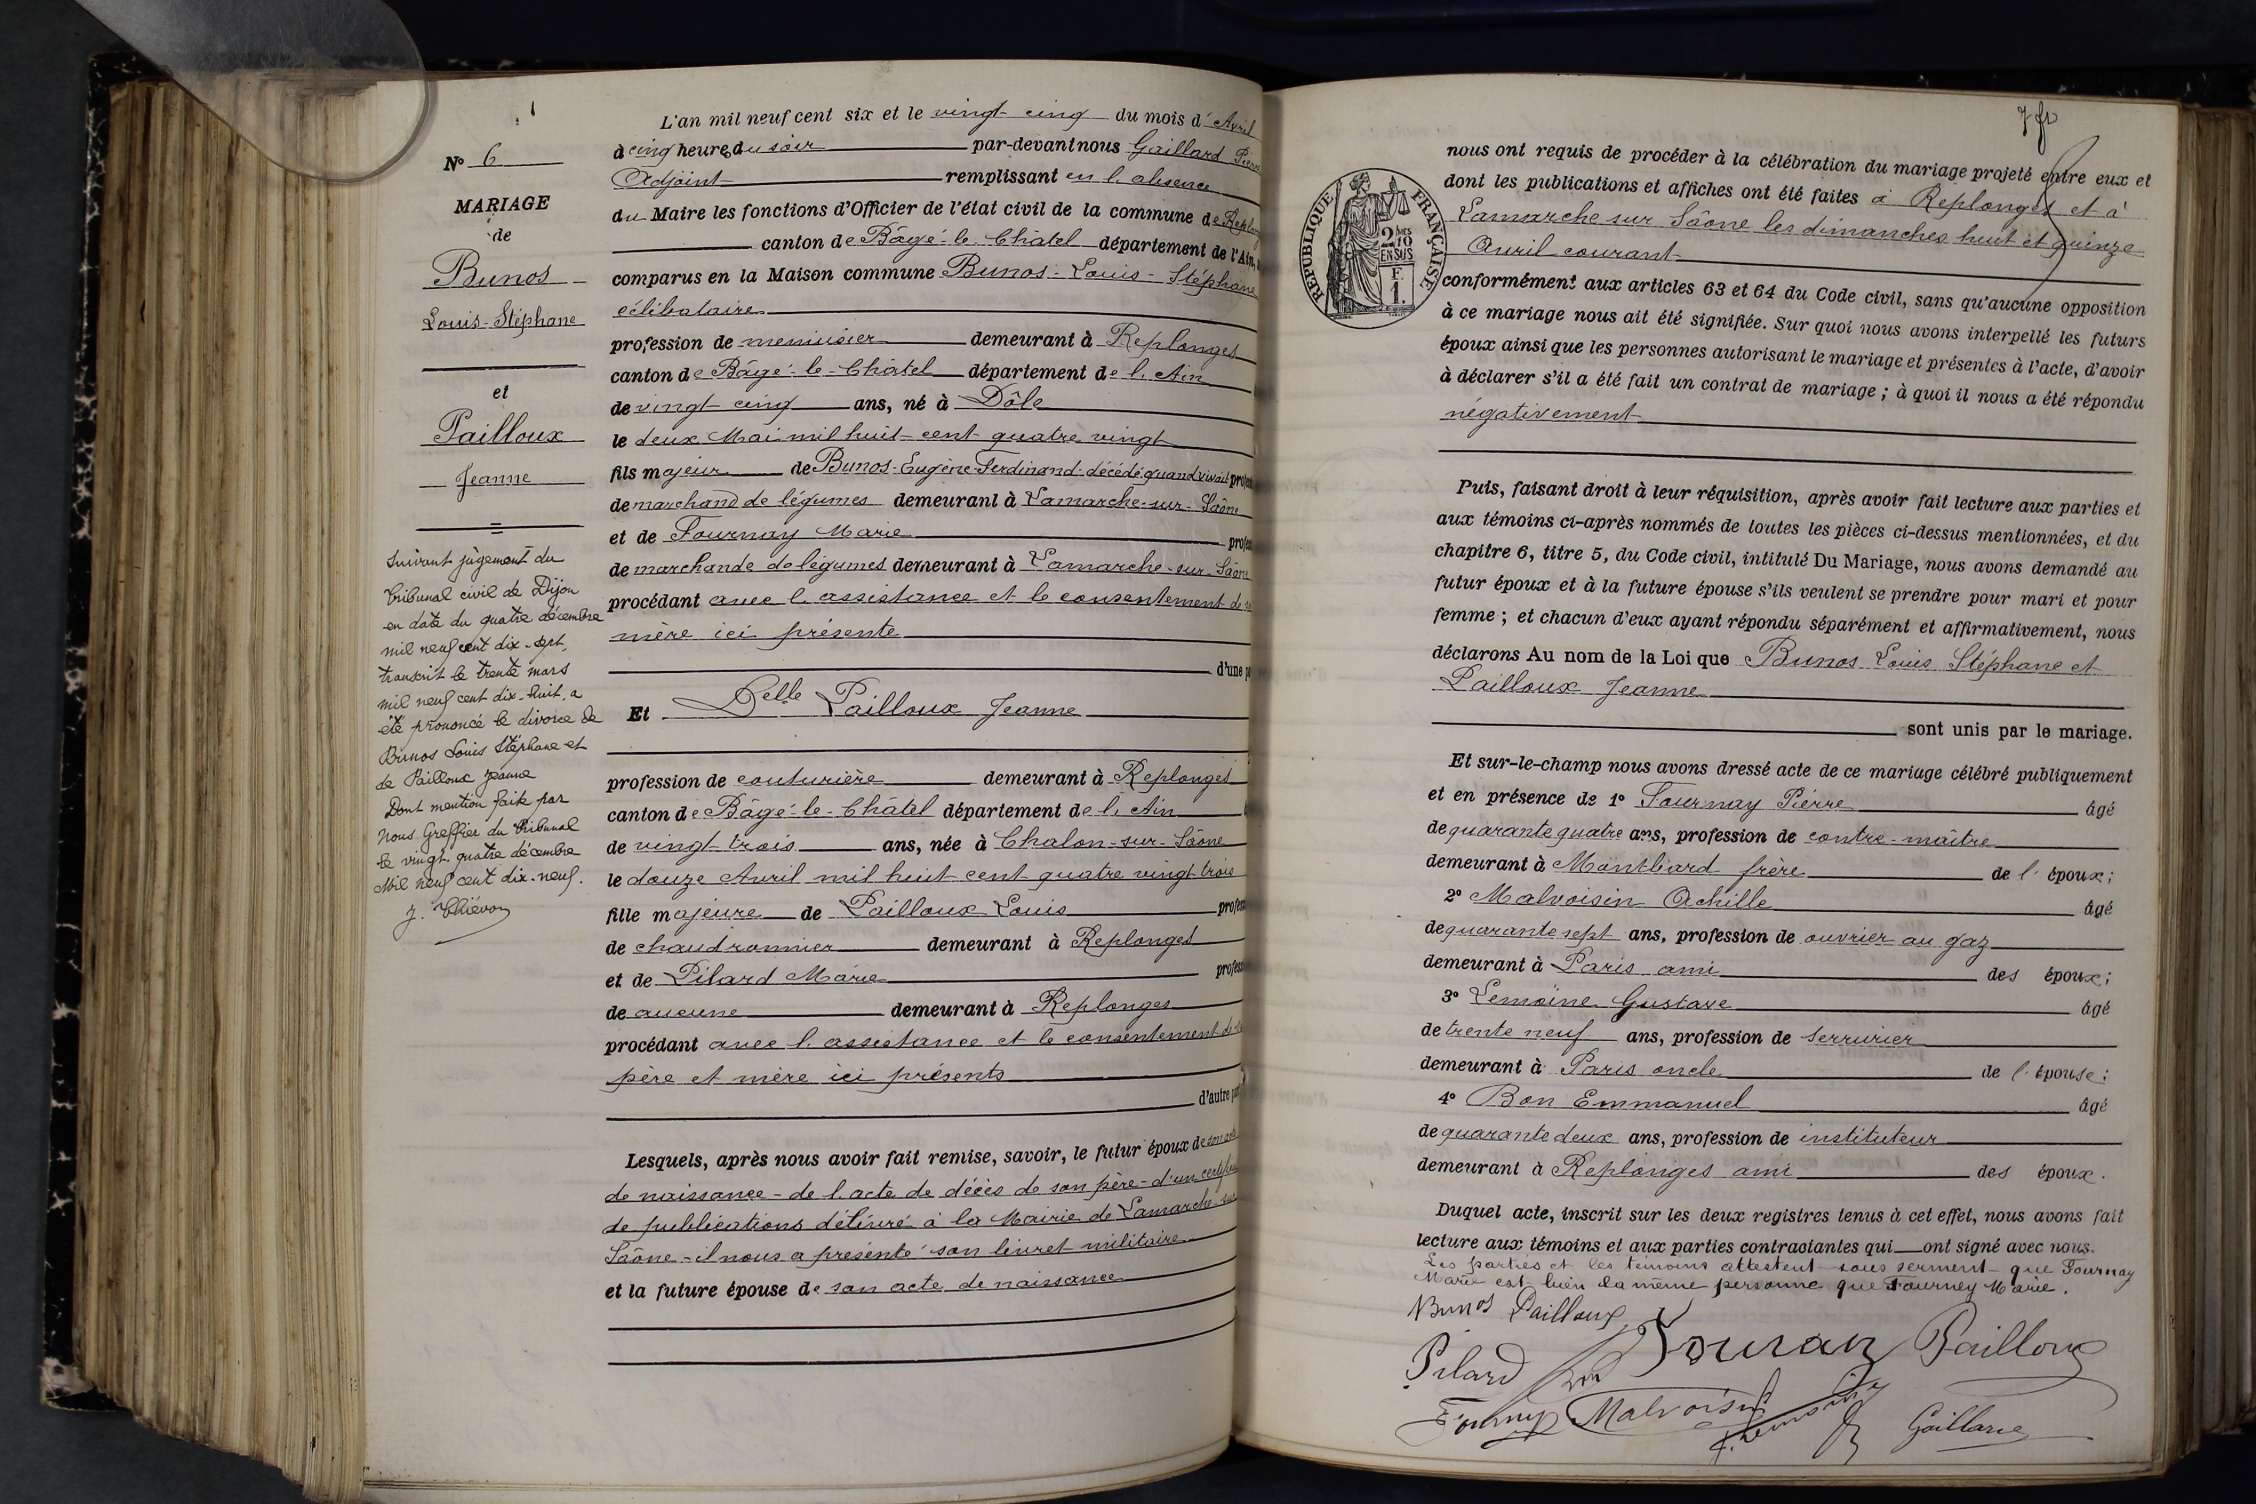 N° 6
MARIAGE
de
Bunos
Louis-Stéphane
et
Pailloux
Jeanne
Suivant jugement du
Tribunal civil de Dijon
en date du quatre décembre
mil neuf cent dix-sept,
transcrit le trente mars
mil neuf cent dix-huit, a
été prononcé le divorce de
Bunos Louis Stéphane et
de Pailloux Jeanne
Dont mention faite par
Nous Greffier du Tribunal
le vingt quatre décembre
Mil neuf cent dix-neuf.
L'an mil neuf cent six et le vingt cinq du mois d'Avril
à cinq heures du soir par-devant nous Gaillard Pierre
Adjoint remplissant en l'absence
du Maire les fonctions d'Officier de l'état civil de la commune de
canton de Bâgé-le-Châtel département de l'Ain,
comparus en la Maison commune Bunos-Louis-Stéphane
célibataire
profession de menuisier demeurant à Replonges
canton de Bâgé-le-Châtel département de l'Ain
de vingt cinq ans, né à Dôle
le deux Mai mil huit cent quatre vingt
fils majeur de Bunos-Eugène-Ferdinand-décédé quand vivait
de marchand de légumes demeurant à Lamarche-sur-Saône
et de Fournay Marie
de marchande de légumes demeurant à Lamarche-sur-Saône
procédant avec l'assistance et le consentement de
mère ici présente
d'une
Et Delle Pailloux Jeanne
profession de couturière demeurant à Replonges
canton de Bâgé-le-Châtel département de l'Ain
de vingt trois ans, née à Chalon-sur-Saône
le douze Avril mil huit cent quatre vingt trois
fille majeure de Pailloux Louis
de chaudronnier demeurant à Replonges
et de Pilard Marie
de aucune demeurant à Replonges
procédant avec l'assistance et le consentement de
père et mère ici présents
d'autre
Lesquels, après nous avoir fait remise, savoir, le futur époux de son
de naissance - de l'acte de décès de son père - d'un
de publications délivré à la Mairie de Lamarche sur
Saône - il nous a présenté son livret militaire
et la future épouse de son acte de naissance
7 fr
RÉPUBLIQUE FRANÇAISE
2/10 EN SUS
F.
1.
nous ont requis de procéder à la célébration du mariage projeté entre eux et
dont les publications et affiches ont été faites à Replonges et à
Lamarche sur Saône les dimanches huit et quinze
Avril courant
conformément aux articles 63 et 64 du Code civil, sans qu'aucune opposition
à ce mariage nous ait été signifiée. Sur quoi nous avons interpellé les futurs
époux ainsi que les personnes autorisant le mariage et présentes à l'acte, d'avoir
à déclarer s'il a été fait un contrat de mariage ; à quoi il nous a été répondu
négativement
Puis, faisant droit à leur réquisition, après avoir fait lecture aux parties et
aux témoins ci-après nommés de toutes les pièces ci-dessus mentionnées, et du
chapitre 6, titre 5, du Code civil, intitulé Du Mariage, nous avons demandé au
futur époux et à la future épouse s'ils veulent se prendre pour mari et pour
femme ; et chacun d'eux ayant répondu séparément et affirmativement, nous
déclarons Au nom de la Loi que Bunos Louis Stéphane et
Pailloux Jeanne
sont unis par le mariage.
Et sur-le-champ nous avons dressé acte de ce mariage célébré publiquement
et en présence de 1° Fournay Pierre âgé
de quarante quatre ans, profession de contre-maître
demeurant à Montbard frère de l'époux ;
2° Malvoisin Achille âgé
de quarante sept ans, profession de ouvrier au gaz
demeurant à Paris ami des époux ;
3° Lemoine Gustave âgé
de trente neuf ans, profession de serrurier
demeurant à Paris oncle de l'épouse ;
4° Bon Emmanuel âgé
de quarante deux ans, profession de instituteur
demeurant à Replonges ami des époux.
Duquel acte, inscrit sur les deux registres tenus à cet effet, nous avons fait
lecture aux témoins et aux parties contractantes qui ont signé avec nous.
Les parties et les témoins attestent sous serment que Fournay
Marie est bien la même personne que Fourney Marie.
Bunos Pailloux
Pilard Pailloux
Malvoisin Gaillard